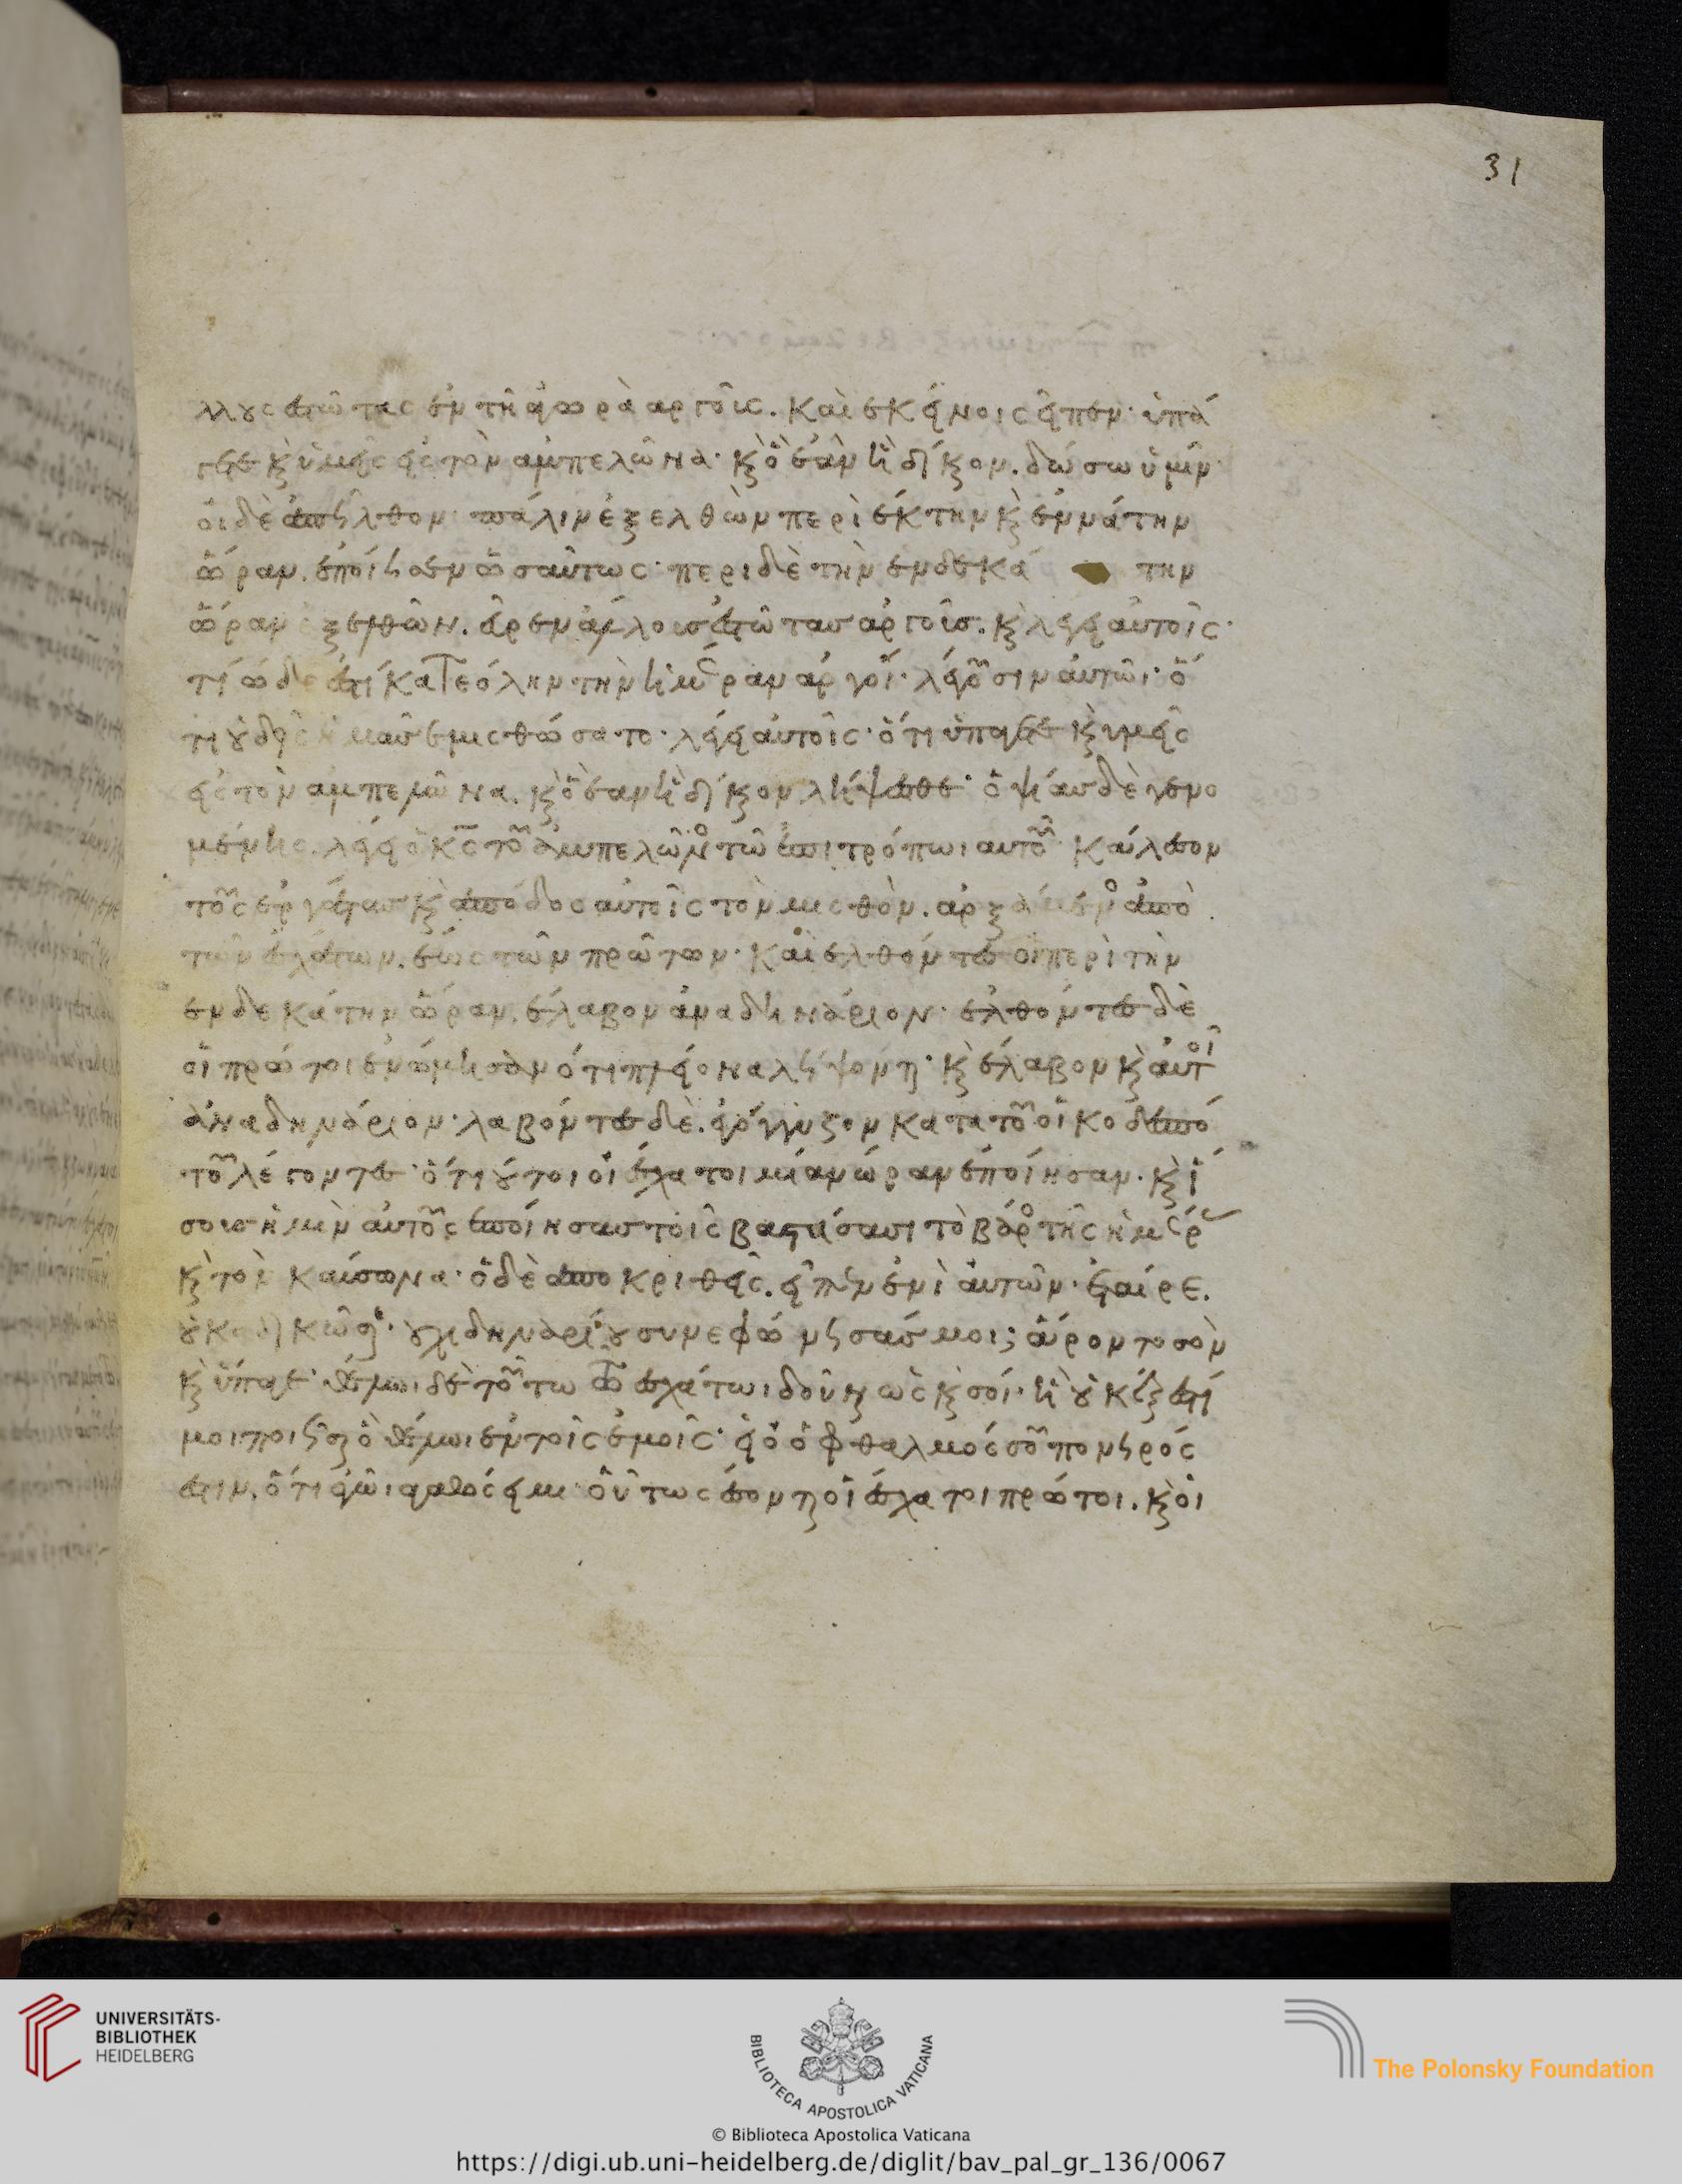 31
λλους εστῶτας ἐν τῆ ἀγορὰ ἀργοῖς. καὶ ἐκείνοις εἶπεν· ὑπά
γετε κ ὑμεῖς εἰς τὸν ἀμπελῶνα· κ ὃ ἐὰν ἦ δίκαιον. δώσω ὑμῖν·
οἱ δὲ ἀπῆλθον· πάλιν ἐξελθὼν περὶ ἕκτην κ ἐννάτην
ὥραν. ἐποίησεν ὡσαύτως· περι δὲ τὴν ἑνδεκά την
ὥραν ἐξελθῶν. εὗρεν ἄλλους ἑστῶτας ἀργοῖς. κ λέγει αὐτοῖς·
τί ὧδε ἑστήκατε ὅλην τὴν ἡμέραν ἀργοί· λέγουσιν αὐτῶι· ὅ
τι οὐδεὶς ἡμᾶς ἐμισθώσατο· λέγει αὐτοῖς· ὅτι ὑπάγετε κ ὑμεῖς
εἰς τὸν ἀμπελῶνα. κ ὃ ἐὰν ἦ δίκαιον λήψεσθε· ὀψίας δὲ γενο
μένης. λέγει ὁ κς τοῦ ἀμπελῶνος τῶ ἐπιτρόπωι αυτοῦ· κάλεσον
τοὺς ἐργάτας κ ἀπόδος αὐτοῖς τὸν μισθὸν. ἀρξάμενος ἀπὸ
τῶν ἐσχάτων. ἕως τῶν πρώτων· καὶ ἐλθόντες οἱ περὶ τὴν
ἑνδεκάτην ὥραν. ἔλαβον ἀνα δηνάριον· ἐλθόντες δὲ
οἱ πρῶτοι ἐνόμισαν ὅτι πλείονα λήψονται· κ ἔλαβον κ αὐτοὶ
ἀνα δηνάριον· λαβόντες δὲ. ἐγόγγυζον κατα τοῦ οἰκοδεσπό
του λέγοντες· ὅτι οὗτοι οἱ ἔσχατοι μίαν ὥραν ἐποίησαν. κ ἴ
σους ἡμῖν αὐτοὺς ἐποίησας τοῖς βαστάσασι τὸ βάρος τῆς ἡμέρας
κ τὸν καύσωνα· ὁ δὲ ἀποκριθεὶς. εἶπεν ἑνὶ αὐτῶν· ἑταίρε.
οὐκ ἀδικῶ σε· οὐχι δηναρίου συνεφώνησάς μοι; ἆρον το σὸν
κ ὕπαγε· θέλω δὲ τούτω τῶ ἐσχάτωι δοῦναι ὡς κ σοί· ἢ οὐκ ἔξεστί
μοι ποιῆσαι ὃ θέλωι ἐν τοῖς ἐμοῖς· εἰ ὁ ὀφθαλμός σοῦ πονηρός
ἐστιν. ὅτι ἐγῶι ἀγαθός εἰμι· οὕτως ἔσονται οἱ ἔσχατοι πρῶτοι. κ οἱ
UNIVERSITÄTS-
BIBLIOTHEK
HEIDELBERG
BIBLIOTECA APOSTOLICA VATICANA
The Polonsky Foundation
© Biblioteca Apostolica Vaticana
https://digi.ub.uni-heidelberg.de/diglit/bav_pal_gr_136/0067